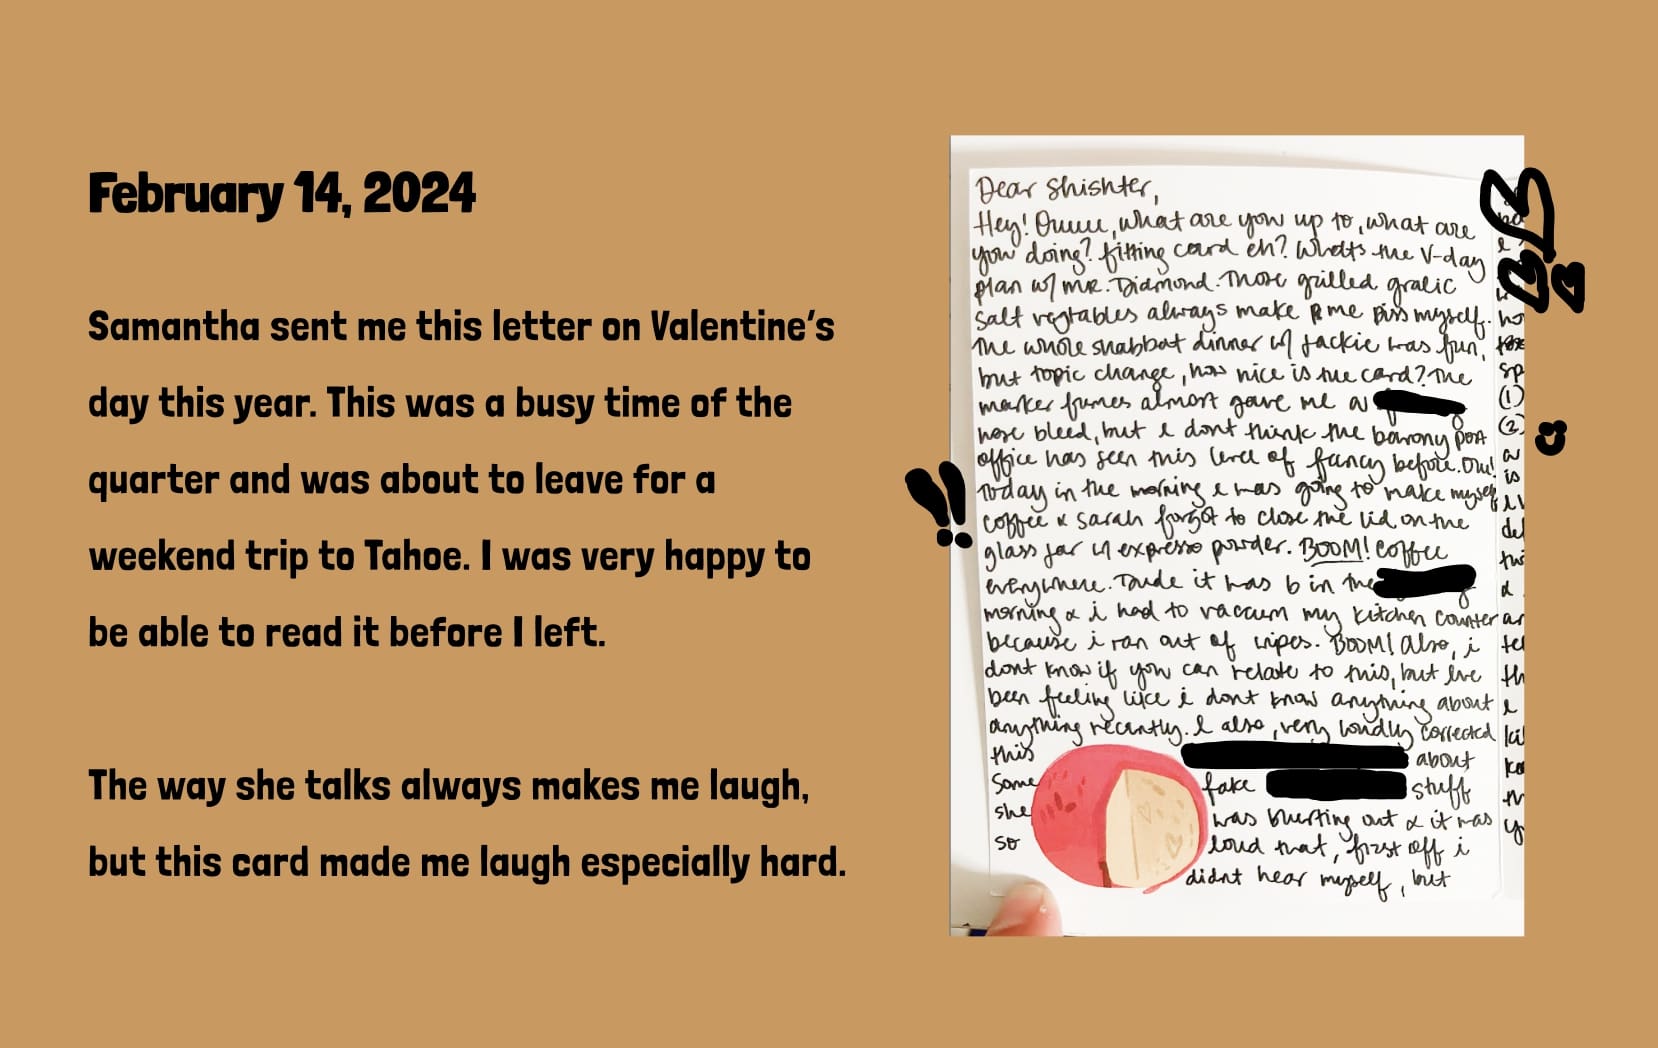 February 14, 2024
Samantha sent me this letter on Valentine's
day this year. This was a busy time of the
quarter and was about to leave for a
weekend trip to Tahoe. I was very happy to
be able to read it before I left.
The way she talks always makes me laugh,
but this card made me laugh especially hard.
Dear Shishter,
Hey! Ouuu, what are you up to, what are
you doing? fitting card eh? What's the V-day
plan w/ MR. Diamond. Those grilled gralic
salt vegtables always make me piss myself.
The whole shabbat dinner w/ Jackie was fun,
but topic change, how nice is the card? The
marker fumes almost gave me a
nose bleed, but i dont think the post
office has seen this level of fancy before. Ou!
Today in the morning i was going to make myself
coffee & Sarah forgot to close the lid on the
glass jar w/ expresso powder. BOOM! coffee
everywhere. Dude it was 6 in the
morning & i had to vaccum my kitchen counter
because i ran out of wipes. BOOM! Also, i
dont know if you can relate to this, but ive
been feeling like i dont know anything about
anything recently. I also, very loudly corrected
this about
some fake stuff
she was blurting out & it was
so loud that, first off i
didnt hear myself, but
(1)
(2)
is